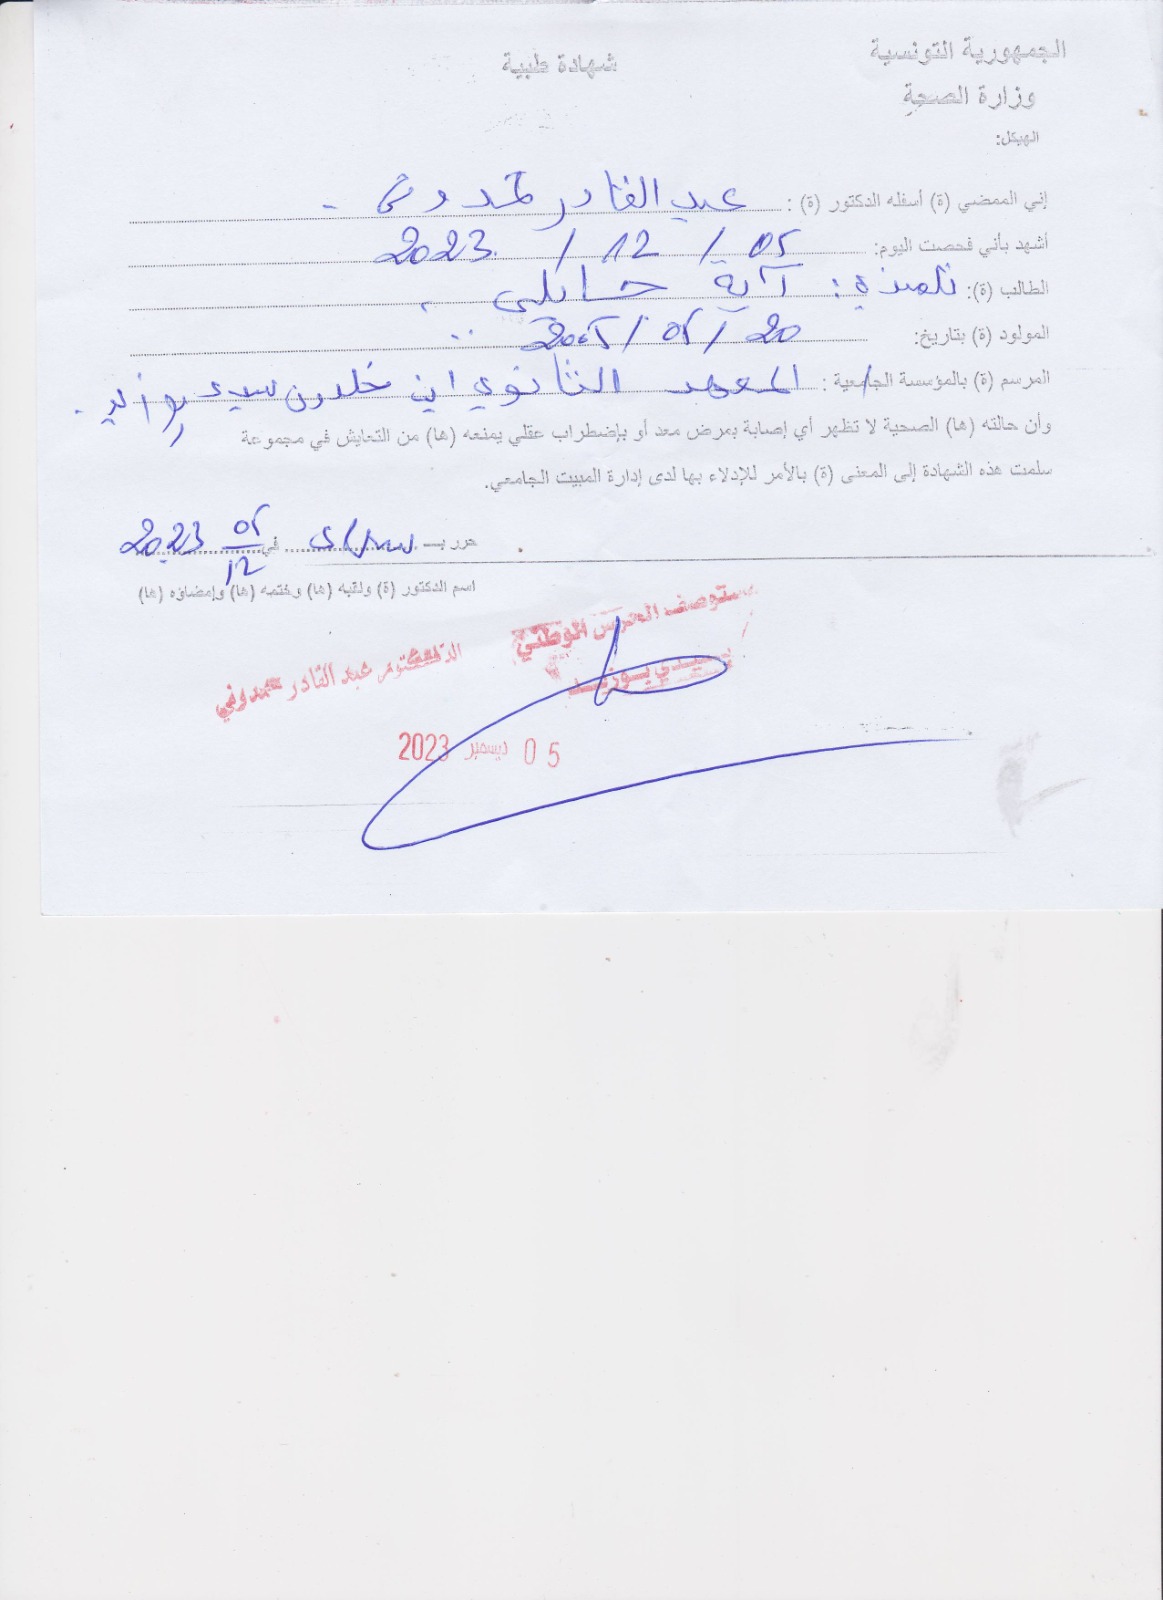 الجمهورية التونسية
وزارة الصحة
شهادة طبية
الهيكل:
إني الممضي (ة) أسفله الدكتور (ة) : عبد القادر حمدوني
أشهد بأني فحصت اليوم: 05 / 12 / 2023
الطالب (ة): تلميذة: آية حسايني
المولود (ة) بتاريخ: 20 / 05 / 2005
المرسم (ة) بالمؤسسة الجامعية : المعهد الثانوي ابن خلدون سيدي بوزيد.
وأن حالته (ها) الصحية لا تظهر أي إصابة بمرض معد أو بإضطراب عقلي يمنعه (ها) من التعايش في مجموعة
سلمت هذه الشهادة إلى المعنى (ة) بالأمر للإدلاء بها لدى إدارة المبيت الجامعي.
حرر بـ في 05/12 2023
اسم الدكتور (ة) ولقبه (ها) وختمه (ها) وإمضاؤه (ها)
مستوصف الحرس الوطني
سيدي بوزيد
الدكتور عبد القادر حمدوني
05 ديسمبر 2023